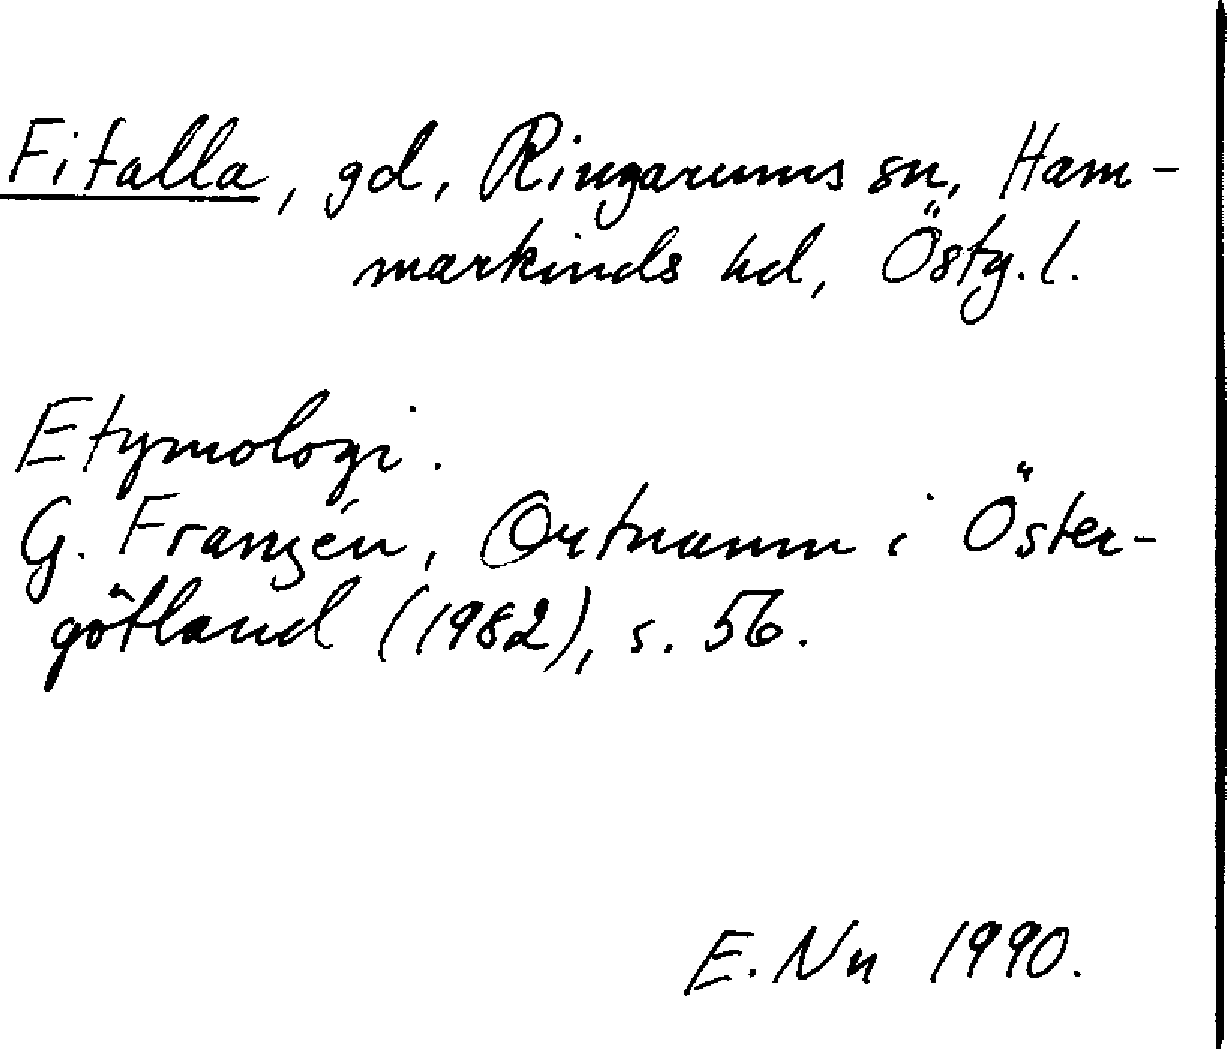 Fitalla, gd, Ringarums sn, Ham-
markinds hd, Östg. l.
Etymologi.
G. Franzén, Ortnamn i Öster-
götland (1982), s. 56.
E. Nn 1990.